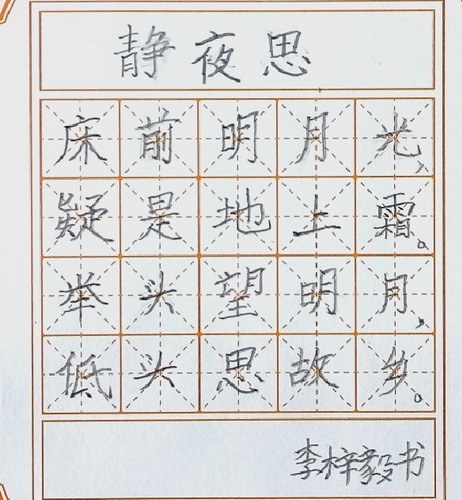 静夜思
床前明月光，
疑是地上霜。
举头望明月，
低头思故乡。
李梓毅书